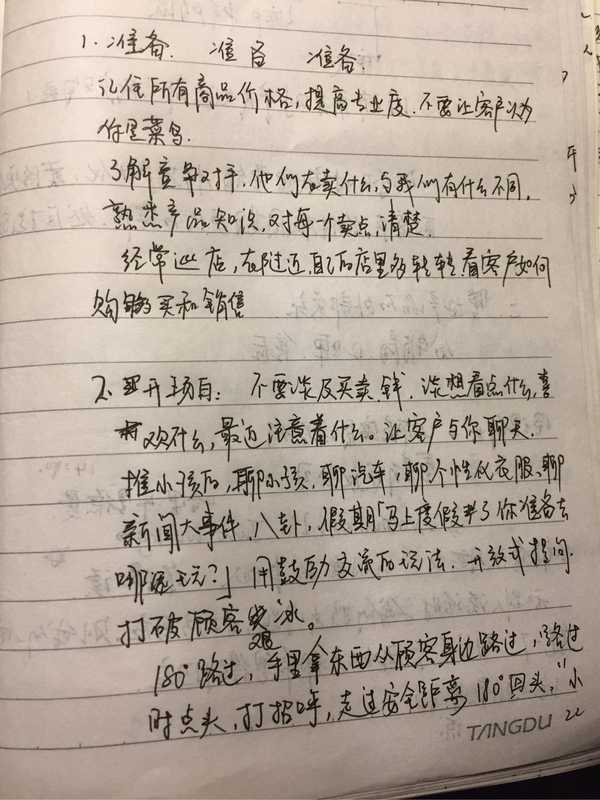 1. 准备. 准备 准备.
记住所有商品价格,提高专业度.不要让客户认为
你是菜鸟.
了解竞争对手,他们在卖什么,与我们有什么不同.
熟悉产品知识,对每一个卖点,清楚.
经常巡店,在附近,自己的店里多转转看客户如何
购买和销售
2. 开场白: 不要谈及买卖.钱.谈想看点什么,喜
欢什么,最近注意着什么。让客户与你聊天.
推小孩的,聊小孩,聊汽车,聊个性化衣服、聊
新闻大事件,八卦,假期「马上度假了你准备去
哪里玩?」用鼓励交流的玩法.开放式提问.
打破顾客坚冰。
180°路过,手里拿东西从顾客身边路过,路过
时点头,打招呼,走过安全距离180°回头,"小
TANGDU 22